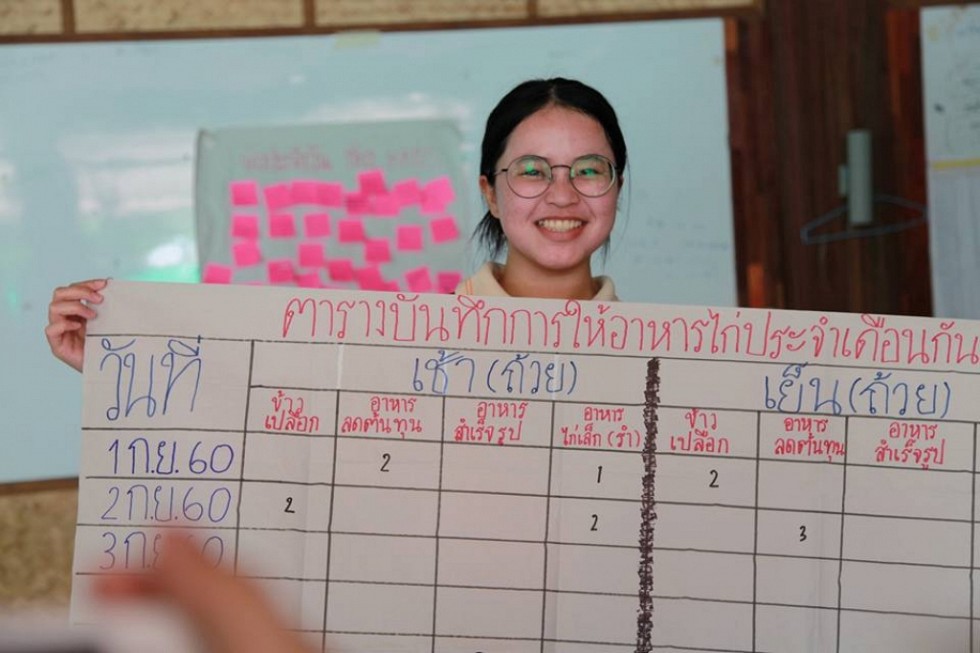 ตารางบันทึกการให้อาหารไก่ประจำเดือนกัน
วันที่ เช้า (ถ้วย) เย็น (ถ้วย)
ข้าวเปลือก อาหารลดต้นทุน อาหารสำเร็จรูป อาหารไก่เล็ก (รำ) ข้าวเปลือก อาหารลดต้นทุน อาหารสำเร็จรูป
1 ก.ย. 60 2 1 2
2 ก.ย. 60 2 2 3
3 ก.ย. 60